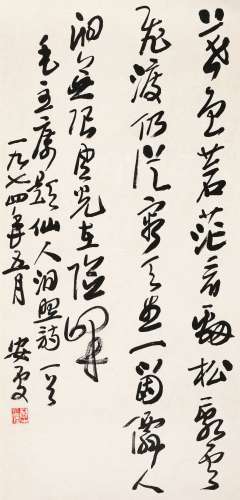 暮色蒼茫看劲松亂雲
飛渡仍從容天生一箇僊人
洞無限風光在險峰
毛主席题仙人洞照詩一首
一九七四年五月